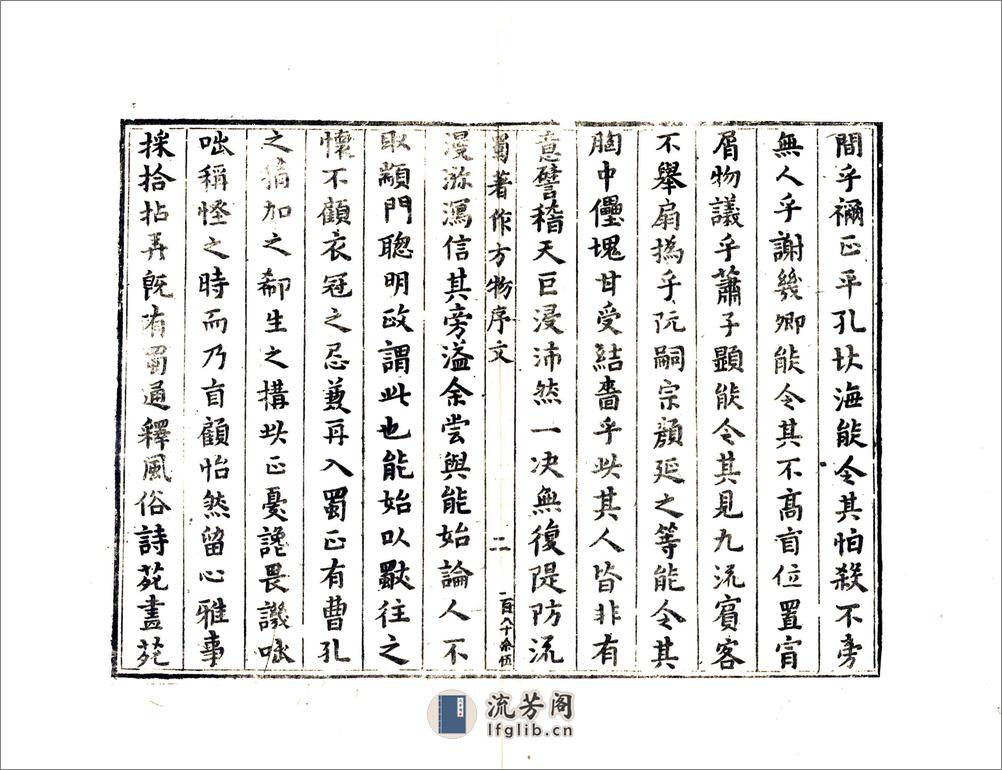 間乎禰正平孔北海能令其怕殺不旁
無人乎謝幾卿能令其不高自位置甯
屑物議乎蕭子顯能令其見九流賓客
不舉扇撝乎阮嗣宗顏延之等能令其
胸中壘塊甘受結嗇乎此其人皆非有
意譬稽天巨浸沛然一决無復隄防流
蜀著作方物序文 二 一百八十叁伍
漫游瀉信其旁溢余嘗與能始論人不
取顓門聰明政謂此也能始以厭往之
懷不顧衣冠之忌兼再入蜀正有曹孔
之稱加之郗生之搆此正憂讒畏譏咄
咄稱怪之時而乃自顧怡然留心雅事
採拾拈弄旣有蜀通釋風俗詩苑畫苑
流芳阁
lfglib.cn